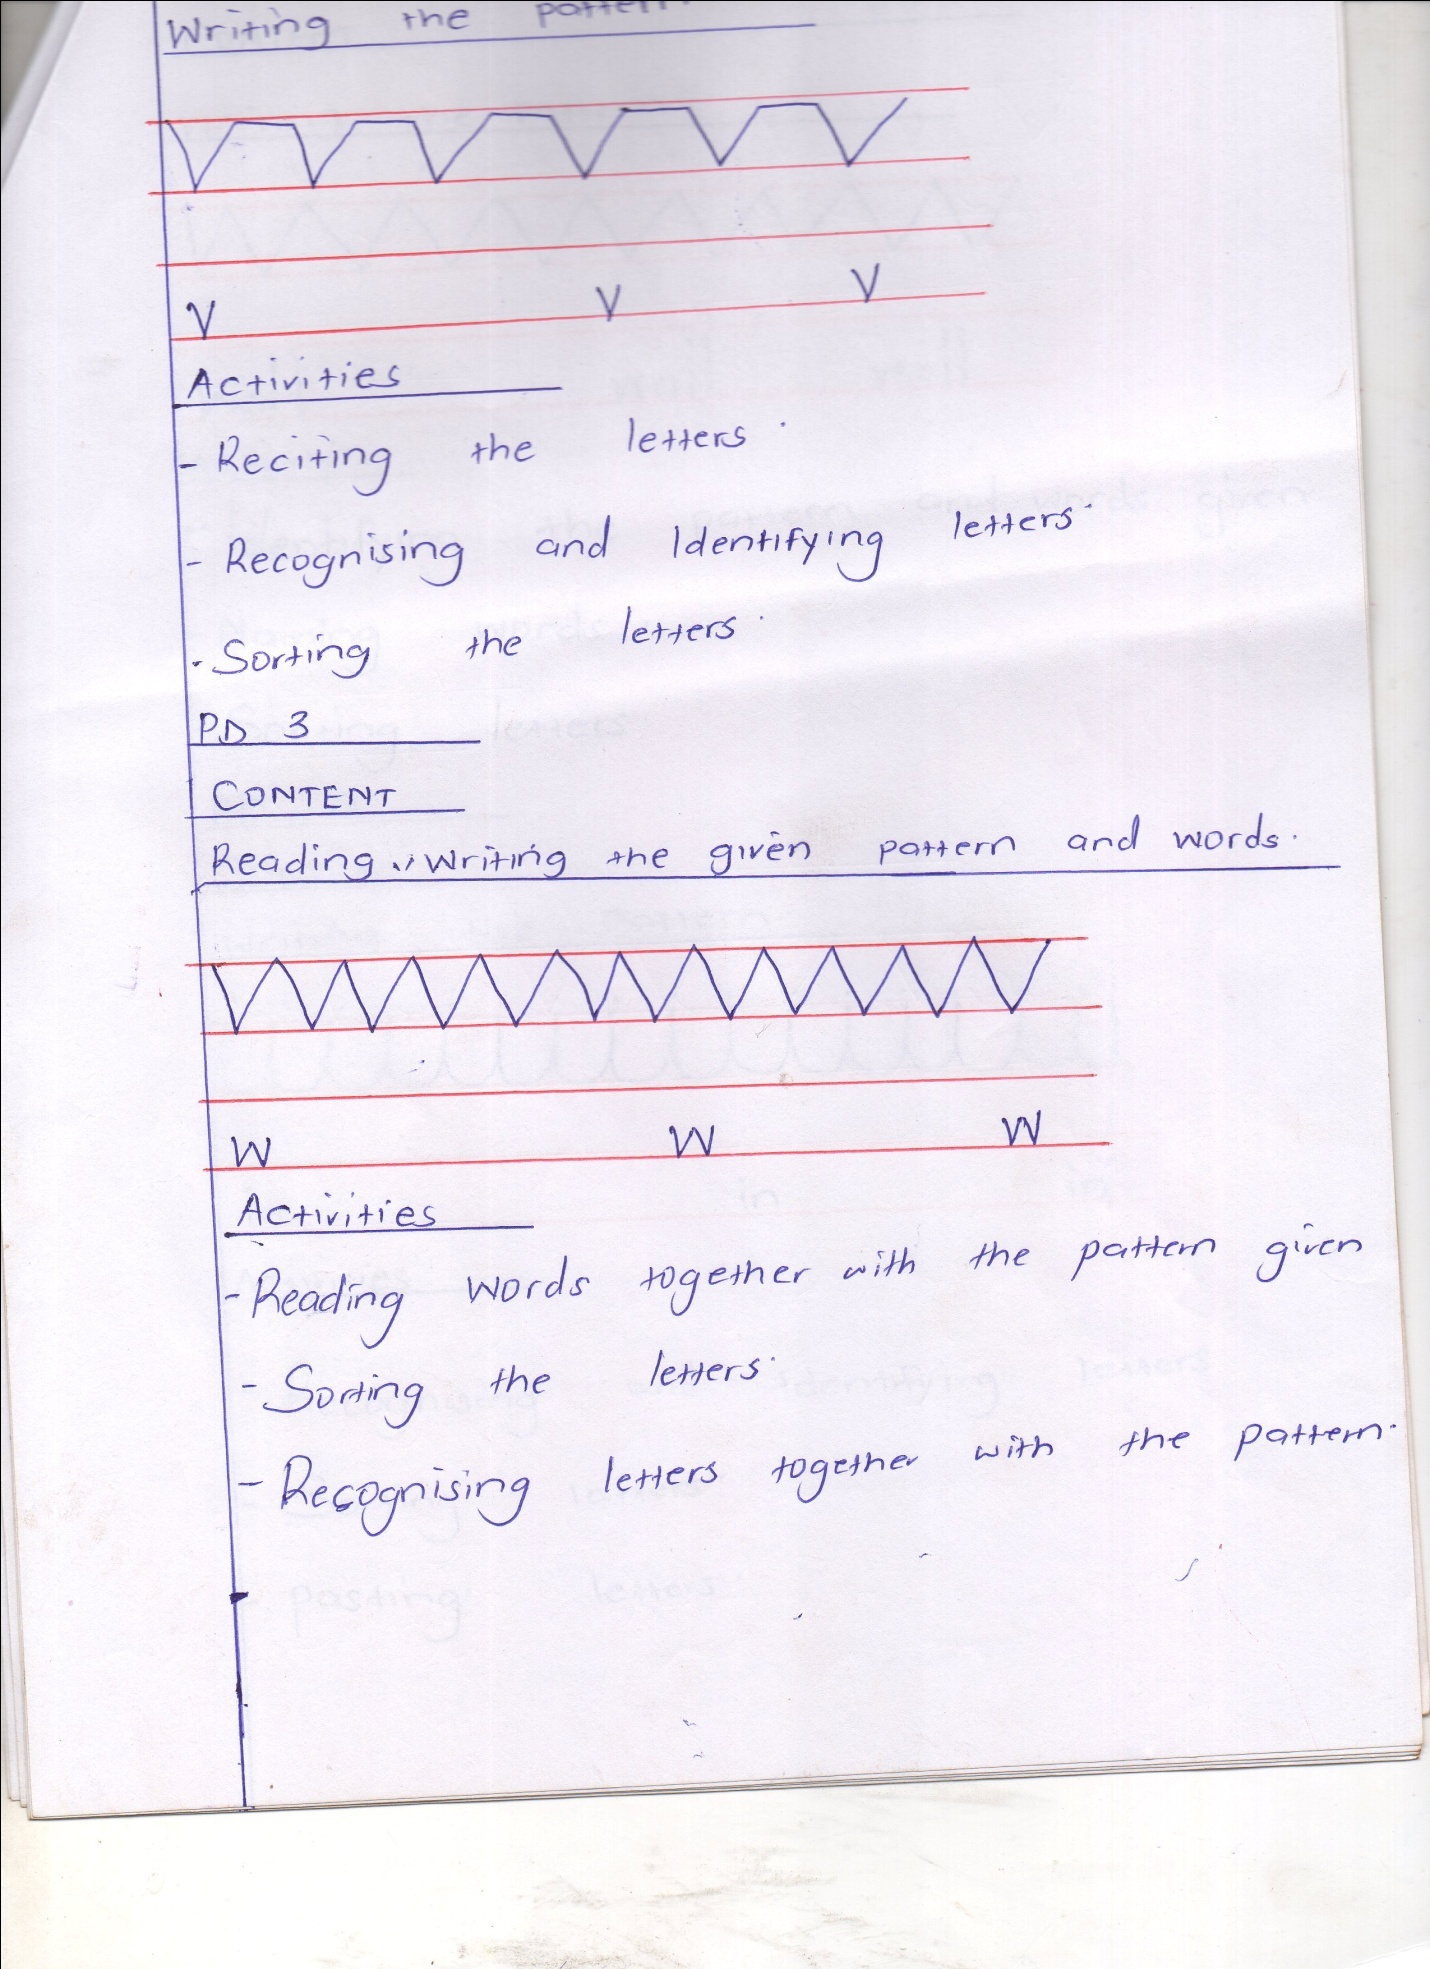 Writing the pattern
V V V
Activities
- Reciting the letters.
- Recognising and Identifying letters.
- Sorting the letters.
PD 3
CONTENT
Reading, writing the given pattern and words.
W W W
Activities
- Reading words together with the pattern given
- Sorting the letters.
- Recognising letters together with the pattern.